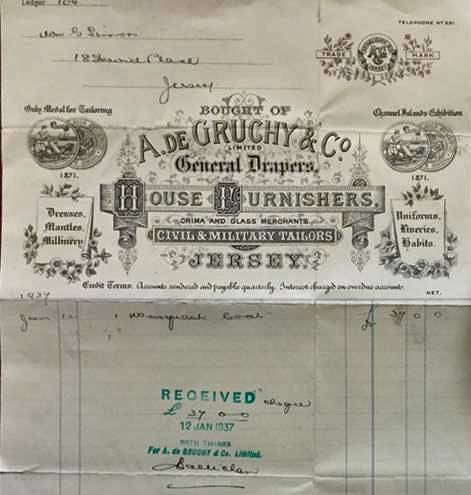 Ledger 104
TELEPHONE No 291
18 David Place
Jersey
TRADE MARK
Only Medal for Tailoring
1871.
BOUGHT OF
Channel Islands Exhibition
1871.
A. DE GRUCHY & Co.
LIMITED
General Drapers,
HOUSE FURNISHERS,
CHINA AND GLASS MERCHANTS.
CIVIL & MILITARY TAILORS
JERSEY.
Dresses,
Mantles,
Millinery.
Uniforms,
Liveries,
Habits.
Credit Terms. Accounts rendered and payable quarterly. Interest charged on overdue accounts.
NET.
1937
Jan 12 1 Musquash Coat £ 37 0 0
RECEIVED cheque
£ 37 0 0
12 JAN 1937
WITH THANKS
For A. de GRUCHY & Co. Limited.